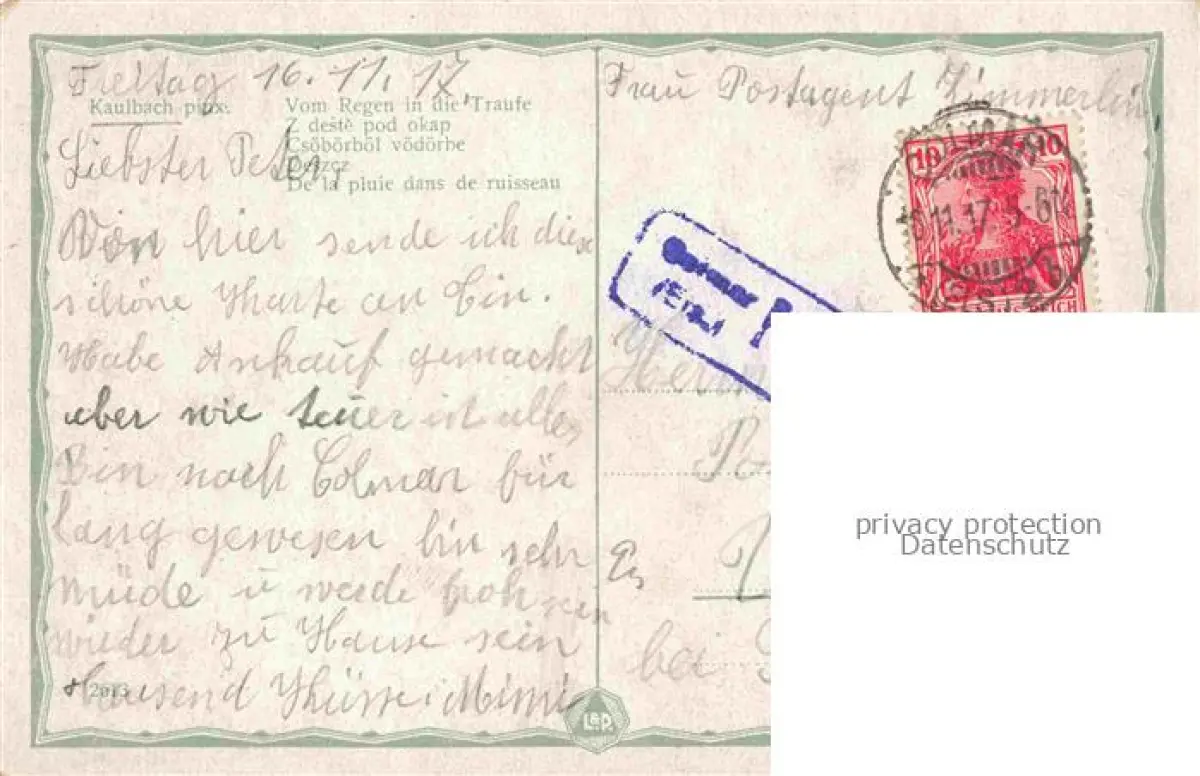 Freitag 16. 11. 17.
Kaulbach pinx.
Vom Regen in die Traufe
Z deště pod okap
Csöbörböl vödörbe
Deszcz
De la pluie dans de ruisseau
Liebster Peter,
Von hier sende ich diese
schöne Karte an Ein.
Habe Ankauf gemacht
aber wie teuer ist alles
Bin nach Colmar für
lang gewesen bin sehr
müde u werde froh sein
wieder zu Hause sein
tausend Küsse Mimi
2013
L&P.
Frau Postagent Zimmerlin
10 10
16.11.17. 5-6N
REICH
Colmar
(Els.)
Herrn
bei
privacy protection
Datenschutz